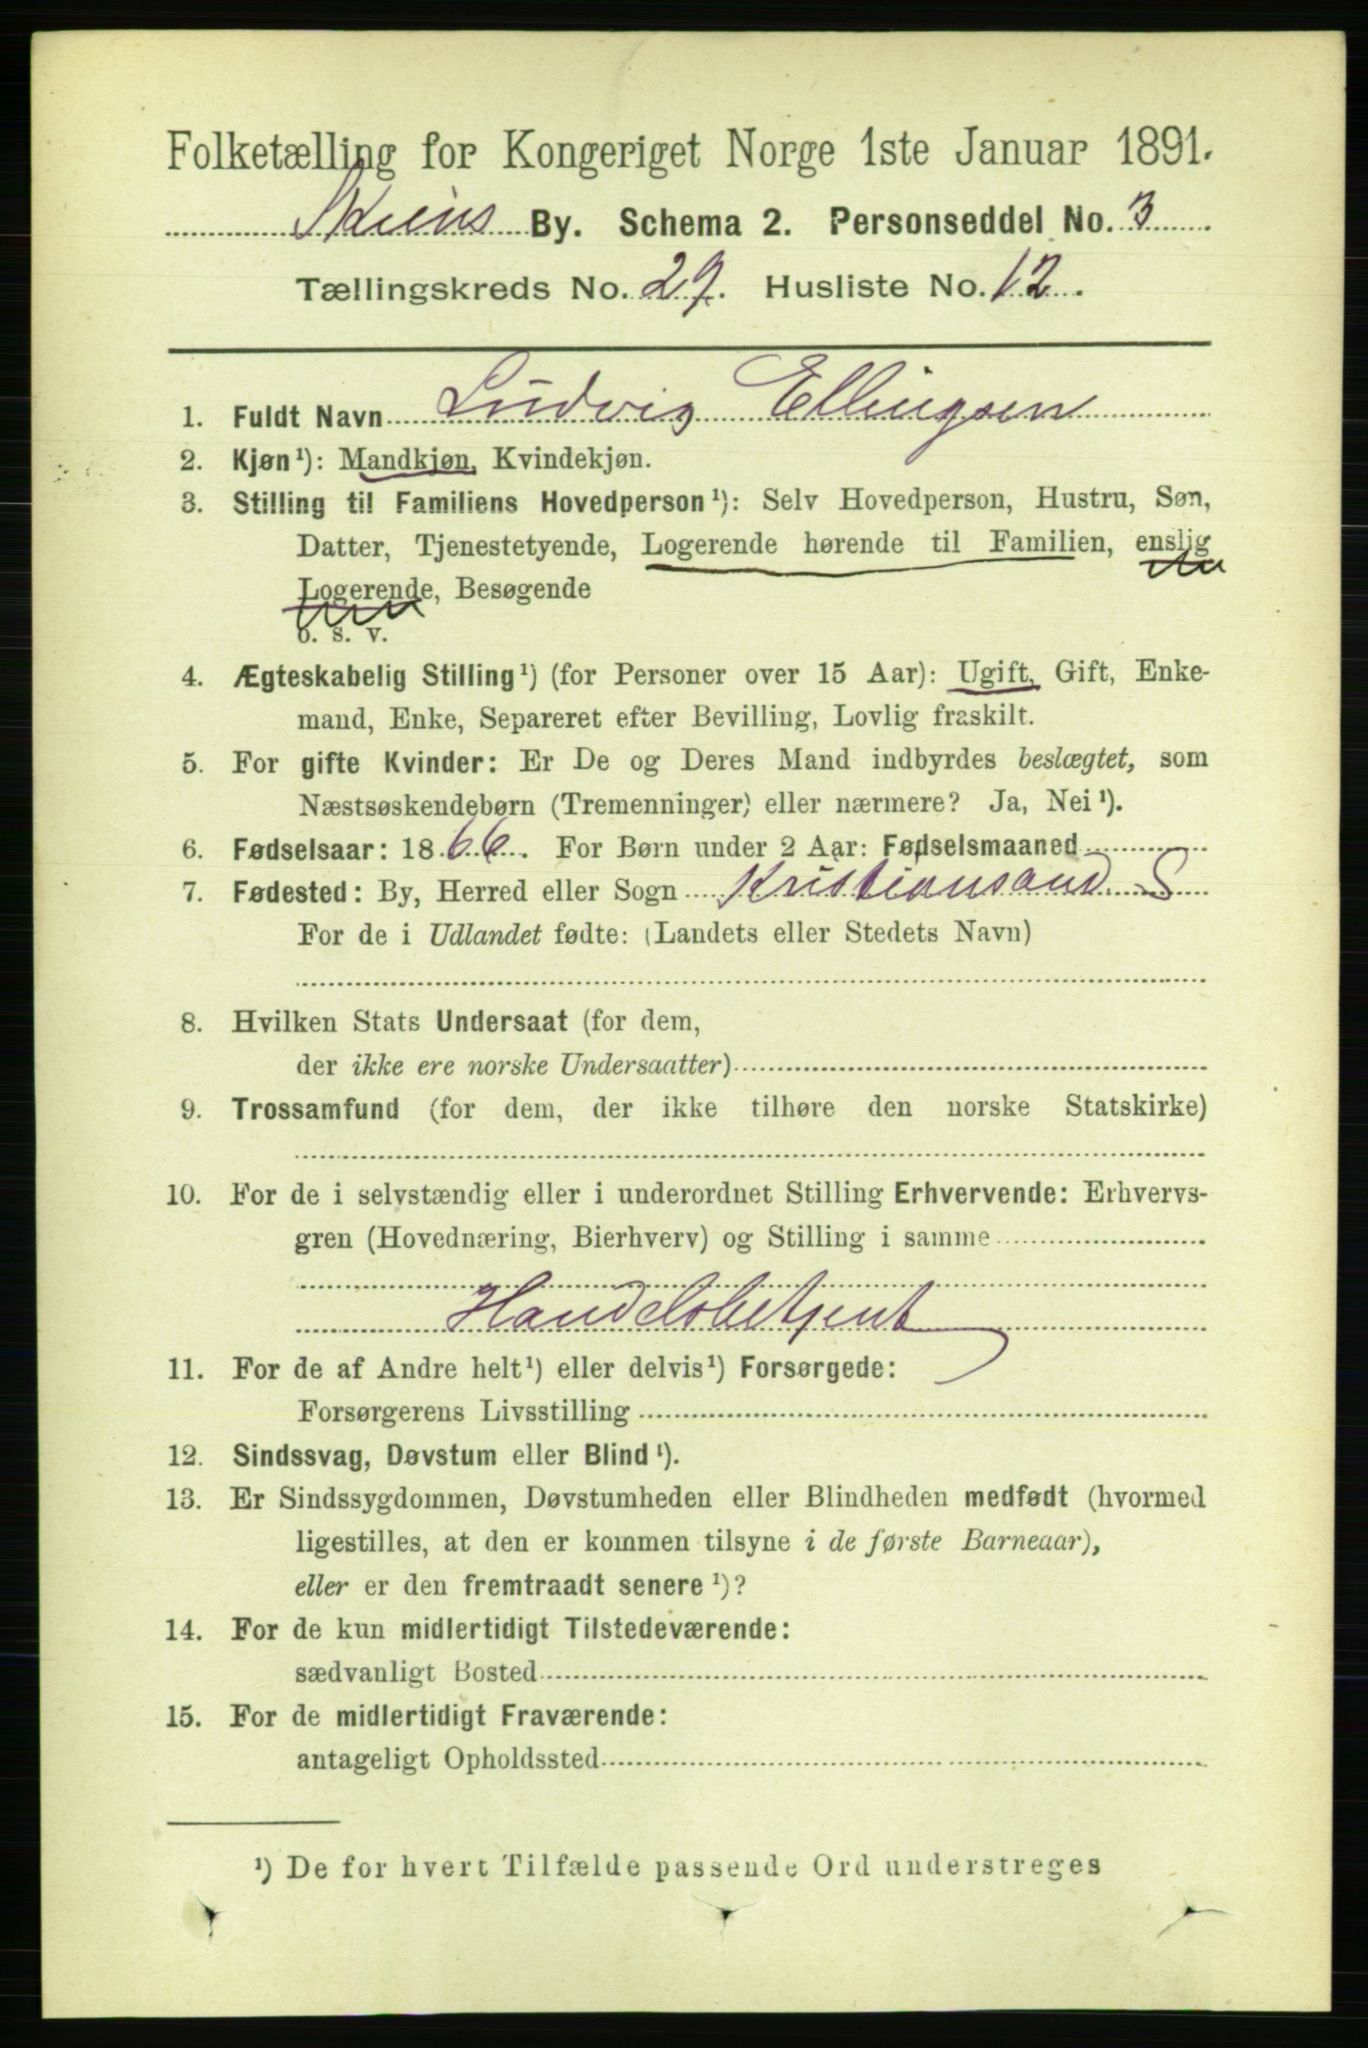 Folketælling for Kongeriget Norge 1ste Januar 1891.
Skiens By. Schema 2. Personseddel No. 3
Tællingskreds No. 29. Husliste No. 12.
1. Fuldt Navn Ludvig Ellingsen
2. Kjøn¹): Mandkjøn, Kvindekjøn.
3. Stilling til Familiens Hovedperson¹): Selv Hovedperson, Hustru, Søn,
Datter, Tjenestetyende, Logerende hørende til Familien, enslig
Logerende, Besøgende
o. s. v.
4. Ægteskabelig Stilling¹) (for Personer over 15 Aar): Ugift, Gift, Enke-
mand, Enke, Separeret efter Bevilling, Lovlig fraskilt.
5. For gifte Kvinder: Er De og Deres Mand indbyrdes beslægtet, som
Næstsøskendebørn (Tremenninger) eller nærmere? Ja, Nei¹).
6. Fødselsaar: 1866. For Børn under 2 Aar: Fødselsmaaned
7. Fødested: By, Herred eller Sogn Kristiansand S
For de i Udlandet fødte: (Landets eller Stedets Navn)
8. Hvilken Stats Undersaat (for dem,
der ikke ere norske Undersaatter)
9. Trossamfund (for dem, der ikke tilhøre den norske Statskirke)
10. For de i selvstændig eller i underordnet Stilling Erhvervende: Erhvervs-
gren (Hovednæring, Bierhverv) og Stilling i samme
Handelsbetjent
11. For de af Andre helt¹) eller delvis¹) Forsørgede:
Forsørgerens Livsstilling
12. Sindssvag, Døvstum eller Blind¹).
13. Er Sindssygdommen, Døvstumheden eller Blindheden medfødt (hvormed
ligestilles, at den er kommen tilsyne i de første Barneaar),
eller er den fremtraadt senere¹)?
14. For de kun midlertidigt Tilstedeværende:
sædvanligt Bosted
15. For de midlertidigt Fraværende:
antageligt Opholdssted
¹) De for hvert Tilfælde passende Ord understreges